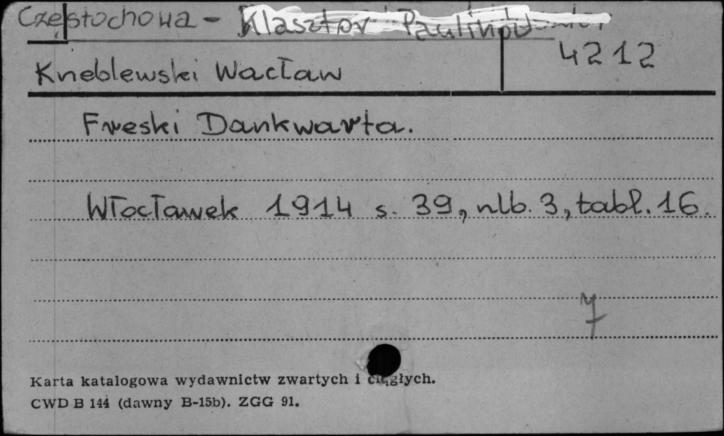 Częstochowa - Klasztor Paulinów
4212
Kneblewski Wacław
Freski Dankwarta.
Włocławek 1914 s. 39, nlb. 3, tabl. 16.
7
Karta katalogowa wydawnictw zwartych i ciągłych.
CWD B 144 (dawny B-15b). ZGG 91.